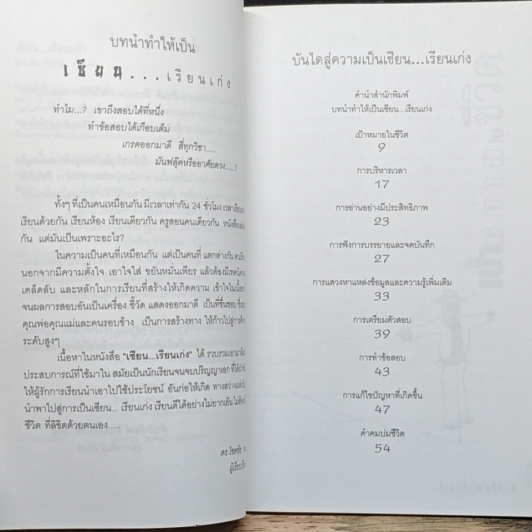 บทนำทำให้เป็น
เซียน...เรียนเก่ง
ทำไม...? เขาถึงสอบได้ที่หนึ่ง
ทำข้อสอบได้เกือบเต็ม
เกรดออกมาดี สี่ทุกวิชา....
มันฟลุ๊คหรืออาศัยดวง.....?
ทั้งๆ ที่เป็นคนเหมือนกัน มีเวลาเท่ากัน 24 ชั่วโมง
เรียนด้วยกัน เรียนห้อง เรียนเดียวกัน ครูสอนคนเดียวกัน
กัน แต่มันเป็นเพราะอะไร?
ในความเป็นคนที่เหมือนกัน แต่เป็นคนที่ แตกต่างกัน
นอกจากมีความตั้งใจ เอาใจใส่ ขยันหมั่นเพียร แล้วต้องมี
เคล็ดลับ และหลักในการเรียนที่สร้างให้เกิดความ เข้าใจ
จนผลการสอบอันเป็นเครื่อง ชี้วัด แสดงออกมาดี เป็นที่
คุณพ่อคุณแม่และคนรอบข้าง เป็นการสร้างทาง ให้ก้าวไปสู่
ระดับสูงๆ
เนื้อหาในหนังสือ "เซียน...เรียนเก่ง" ได้
ประสบการณ์ที่ใช้มาใน สมัยเป็นนักเรียนจนจบปริญญาเอก
ให้ผู้รักการเรียนนำเอาไปใช้ประโยชน์ อันก่อให้เกิด
นำพาไปสู่การเป็นเซียน... เรียนเก่ง เรียนดีได้อย่างไม่ยากเย็น
ชีวิต ที่ลิขิตด้วยตนเอง.....
บันไดสู่ความเป็นเซียน...เรียนเก่ง
คำนำสำนักพิมพ์
บทนำทำให้เป็นเซียน...เรียนเก่ง
เป้าหมายในชีวิต
9
การบริหารเวลา
17
การอ่านอย่างมีประสิทธิภาพ
23
การฟังการบรรยายและจดบันทึก
27
การแสวงหาแหล่งข้อมูลและความรู้เพิ่มเติม
33
การเตรียมตัวสอบ
39
การทำข้อสอบ
43
การแก้ไขปัญหาที่เกิดขึ้น
47
คำคมบ่มชีวิต
54